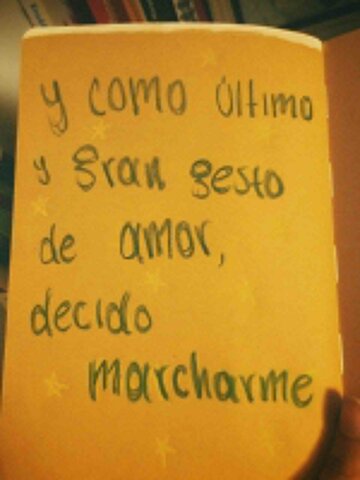 y como último
y gran gesto
de amor,
decido
marcharme